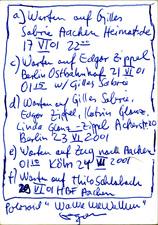 a) Warten auf Gilles
Sabrie Aachen Heimatstr.
17 VI 01 22⁰⁰
c) Warten auf Edgar Zippel
Berlin Ostbahnhof 21 VI 01
01¹⁰ w/ Gilles Sabrie
d) Warten auf Gilles Sabrie,
Edgar Zippel, Katrin Glanz,
Linda Glanz-Zippel
Berlin 23 VI 2001
e) Warten auf Zug nach Aachen
01¹⁰ Köln 24 VI 2001
f) Warten auf Thilo
VI 01 HBF Aachen
Polaroid